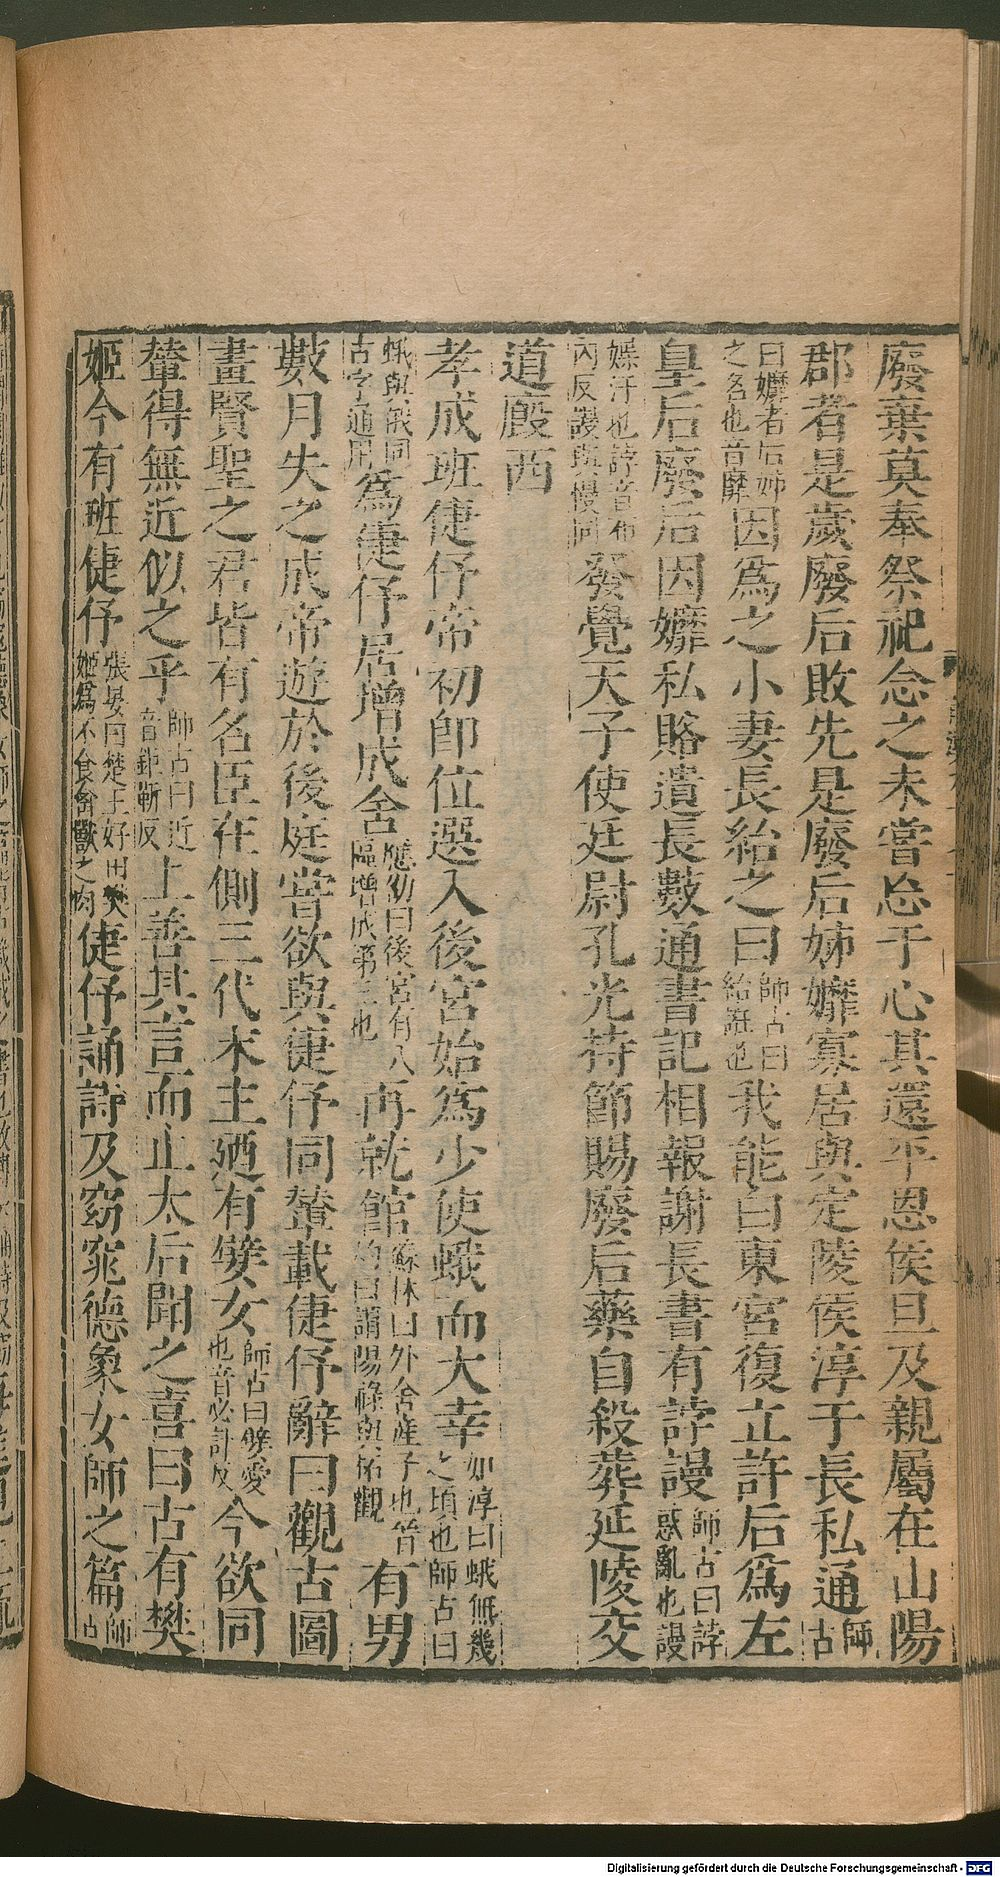 廢棄莫奉祭祀念之未嘗忘于心其還平恩侯旦及親屬在山陽
郡者是歲廢后敗先是廢后姊孊寡居與定陵侯淳于長私通師古
曰孊者后姊之名也音靡因爲之小妻長紿之曰師古曰紿誑也我能白東宮復立許后爲左
皇后廢后因孊私賂遺長數通書記相報謝長書有誖謾師古曰誖惑亂也謾
媟汙也誖音布内反謾與慢同發覺天子使廷尉孔光持節賜廢后藥自殺葬延陵交
道廄西
孝成班倢伃帝初即位選入後宮始爲少使蛾而大幸如淳曰蛾無幾之頃也師古曰
蛾與俄同古字通用爲倢伃居增成舍應劭曰後宮有八區增成第三也再就館蘇林曰外舍產子也晉灼曰謂陽祿與柘觀有男
數月失之成帝遊於後庭嘗欲與倢伃同輦載倢伃辭曰觀古圖
畫賢聖之君皆有名臣在側三代末主廼有嬖女師古曰嬖愛也音必計反今欲同
輦得無近似之乎師古曰近音鉅靳反上善其言而止太后聞之喜曰古有樊
姬今有班倢伃張晏曰楚王好田樊姬爲不食禽獸之肉倢伃誦詩及窈窕德象女師之篇師古
Digitalisierung gefördert durch die Deutsche Forschungsgemeinschaft - DFG